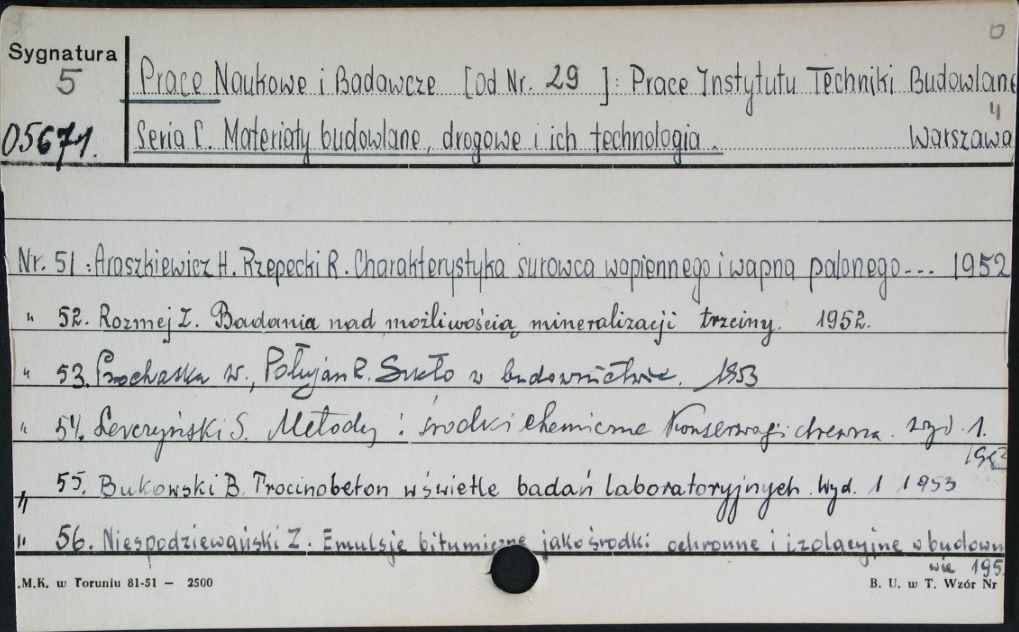 0
Sygnatura
5
05671.
Prace Naukowe i Badawcze [od Nr. 29 ]: Prace Instytutu Techniki Budowlanej
Seria C. Materiały budowlane, drogowe i ich technologia. Warszawa
Nr. 51 : Araszkiewicz H. Rzepecki R. Charakterystyka surowca wapiennego i wapna palonego --- 1952
" 52. Rozmej Z. Badania nad możliwością mineralizacji trzciny. 1952.
" 53. Prochaska W., Połujan R. Szkło w budownictwie. 1953
" 54. S. Metody i środki chemiczne Konserwacji drewna. wyd. 1.
" 55. Bukowski B. Trocinobeton w świetle badań laboratoryjnych. Wyd. 1 1953
" 56. Niespodziewański Z. Emulsje bitumiczne jako środki ochronne i izolacyjne w budown
wie 195
.M.K. w Toruniu 81-51 — 2500
B. U. w T. Wzór Nr